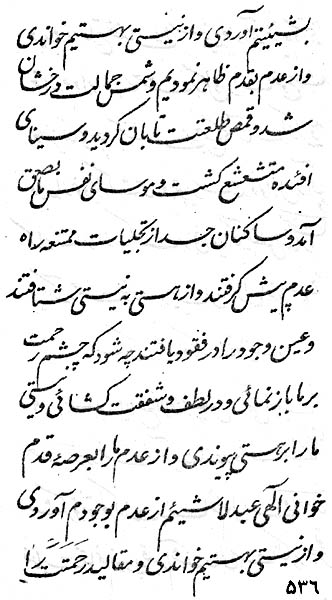 بشیئیتم آوردی و از نیستی بهستیم خواندی
و از عدم بقدم ظاهر نمودیم و شمس جمالت درخشان
شد و قمص طلعتت تابان گردید و سینای
افئده متشعشع گشت و موسای نفس نابصعق
آمد و ساکنان جسد از تجلیات ممتنعه راه
عدم پیش گرفتند و از هستی به نیستی شتافتند
و عین وجود را در فقود یافتند چه شود که چشم رحمت
بر ما باز نمائی و در لطف و شفقت گشائی و نیستی
ما را بر هستی پیوندی و از عدم ما را بعرصهٔ قدم
خوانی آلهی عبد لاشیئم از عدم بوجودم آوردی
و از نیستی بهستیم خواندی و مقالید رحمتت را
۵۳٦